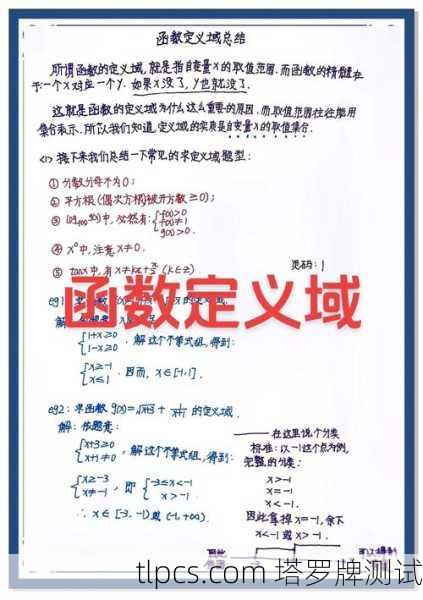 函数定义域总结
所谓函数的定义域,就是指自变量X的取值范围.而函数的精髓在
于一个X对应一个Y.如果X没了,Y也就没了.
这就是函数的定义域为什么这么重要的原因.而取值范围往往能用
集合表示.所以我们知道,定义域的实质是自变量X的取值集合.
<1> 接下来我们总结一下常见的求定义域题型:
① 分数分母不为0;
② 平方根(偶次方根)被开方数≥0);
③ 中,必然有:{f(x)>0
f(x)≠1
g(x)>0.
④ X⁰中,注意X≠0.
⑤ tanx中,有X≠kπ+π/2 (k∈Z)
页码:1
函数定义域
eg1:
的定义域.
解:
{1+x≥0
1-x≥0
,解这个不等式组,得到:
{x≥-1
x≤1
.因而, x∈[-1,1].
eg2:求函数g(x)=√x+3 + 1/x+1 的定义域.
解:依题意:
{x+3≥0
x+1≠0
,解这个不等式组,得到:
{x≥-3
x≠-1
,即{-3≤x<-1
x>-1
∴ x∈[-3,-1)或(-1,+∞).
在这里说个分类
标准:以-1这个点为例,
完整的分类:
x>-1
x=-1
x<-1.
因此拿掉x=-1,余下
x<-1或x>-1.
tlpcs.com 塔罗牌测试